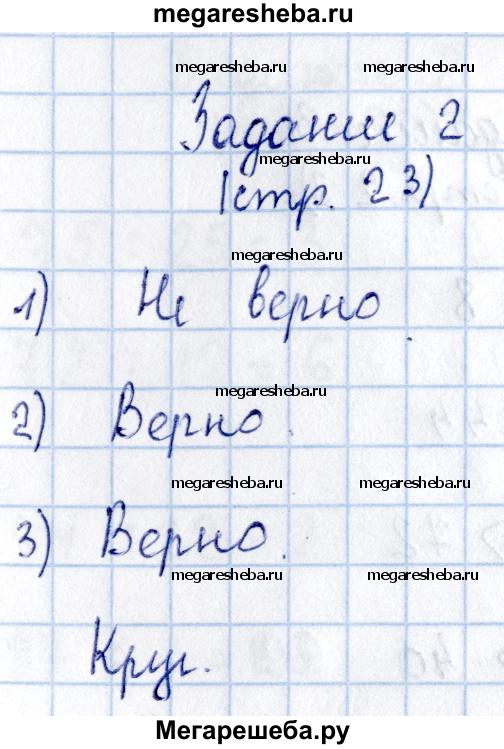 megaresheba.ru
megaresheba.ru megaresheba.ru
Задание 2
megaresheba.ru
(стр. 23)
megaresheba.ru
1) Не верно.
megaresheba.ru
2) Верно.
megaresheba.ru megaresheba.ru
3) Верно.
megaresheba.ru megaresheba.ru
Круг.
Мегарешеба.ру